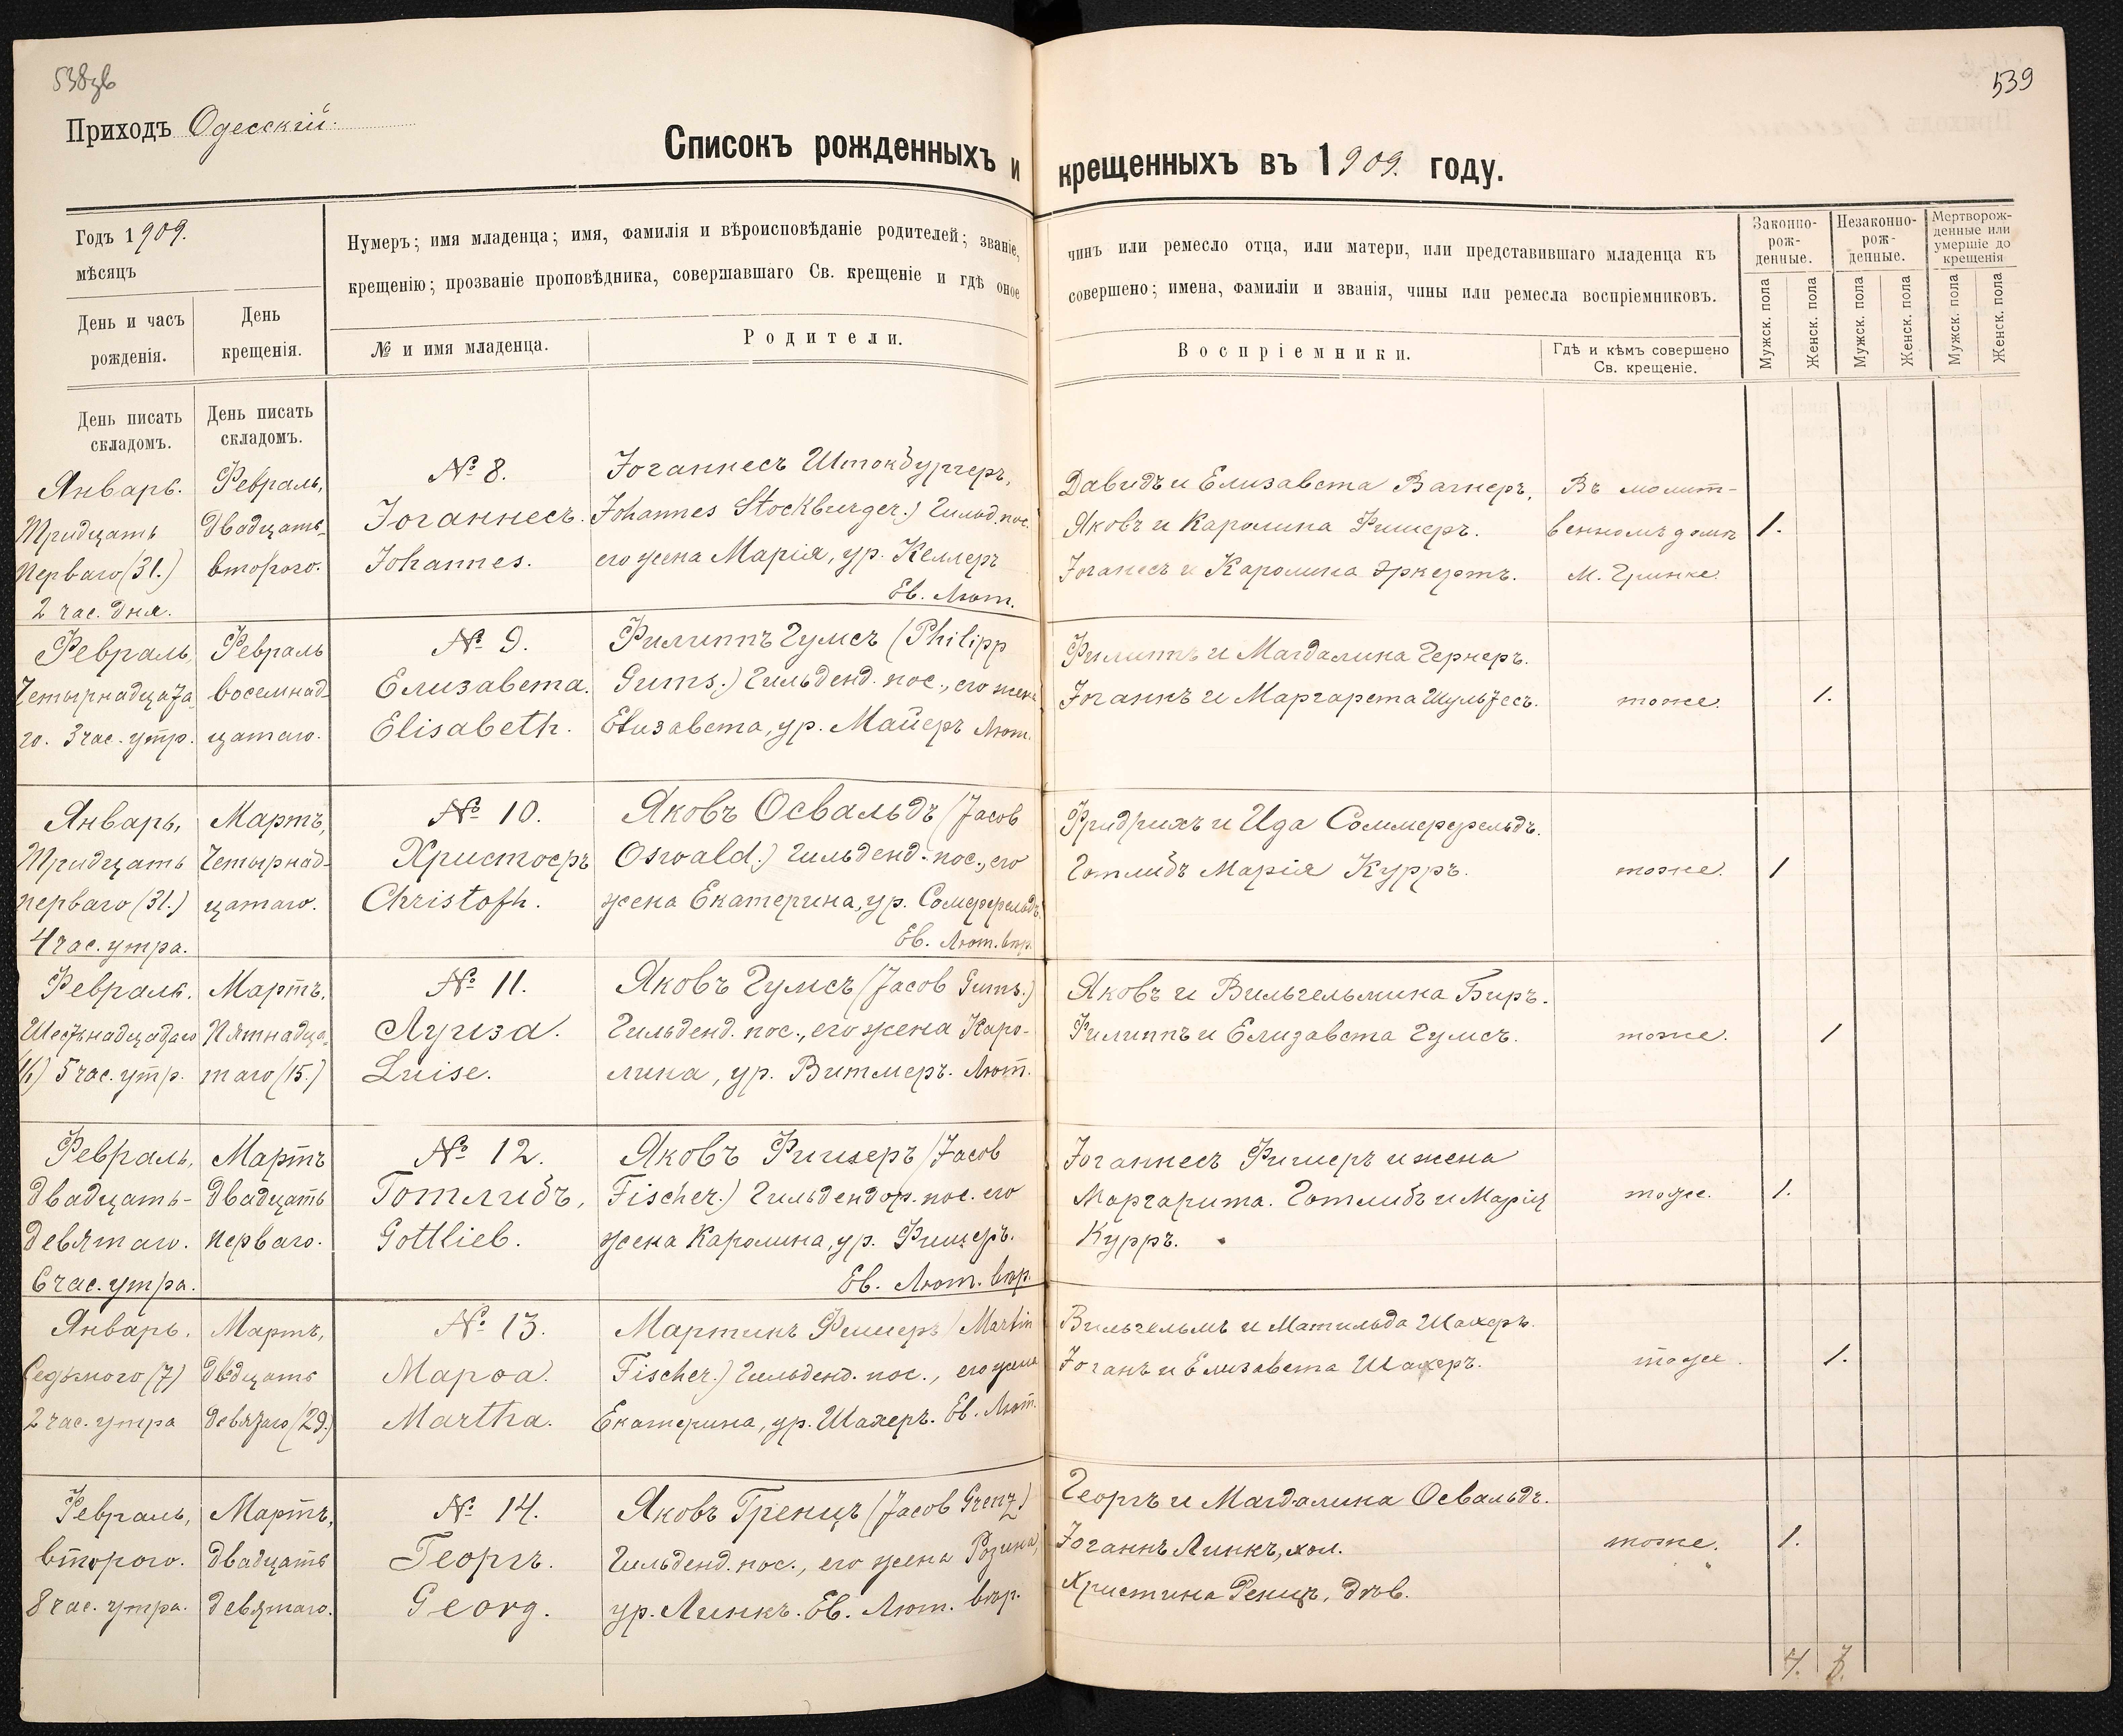 538зв
539
Приходъ Одесскій.
Списокъ рожденныхъ и крещенныхъ въ 1909. году.
Годъ 1909.
мѣсяцъ
День и часъ
рожденія.
День
крещенія.
Нумеръ; имя младенца; имя, фамилія и вѣроисповѣданіе родителей; званіе,
крещенію; прозваніе проповѣдника, совершавшаго Св. крещеніе и гдѣ оное
№ и имя младенца.
Родители.
чинъ или ремесло отца, или матери, или представившаго младенца къ
совершено; имена, фамиліи и званія, чины или ремесла воспріемниковъ.
Воспріемники.
Гдѣ и кѣмъ совершено
Св. крещеніе.
Законно-
рож-
денные.
Незаконно-
рож-
денные.
Мертворож-
денные или
умершіе до
крещенія
Мужск. пола
Женск. пола
Мужск. пола
Женск. пола
Мужск. пола
Женск. пола
День писать
складомъ.
День писать
складомъ.
Январь.
Тридцать
перваго (31.)
2 час. дня.
Февраль,
двадцать-
второго.
№ 8.
Іоганнесъ.
Johannes.
Іоганнесъ Штокбургеръ,
Johannes Stockburger.) Гильд. пос.
его жена Марія, ур. Келлеръ
Ев. Лют.
Давидъ и Елизавета Вагнеръ,
Яковъ и Каролина Фишеръ.
Іоганесъ и Каролина Эркертъ.
Въ молит-
венномъ домѣ
М. Гринке.
1.
Февраль,
Четырнадцата
го. 3 час. утр.
Февраль
восемнад-
цатаго.
№ 9.
Елизавета.
Elisabeth.
Филиппъ Гумсъ (Philipp
Gums.) Гильденд. пос., его жена
Елизавета, ур. Майеръ Лют.
Филиппъ и Магдалина Гернеръ.
Іоганнъ и Маргарета Шультесъ.
тоже.
1.
Январь,
Тридцать
перваго (31.)
4 час. утра.
Мартъ,
Четырнад-
цатаго.
№ 10.
Христофъ
Christofh.
Яковъ Освальдъ (Jacob
Oswald.) Гильденд. пос., его
жена Екатерина, ур. Сомерфельдъ.
Ев. Лют. вѣр.
Фридрихъ и Ида Соммерфельдъ.
Готлибъ Марія Курръ.
тоже.
1
Февраль.
Шестнадцатаго
16) 5 час. утр.
Мартъ.
Пятнадца-
таго (15.)
№ 11.
Луиза.
Luise.
Яковъ Гумсъ (Jacob Gums.)
Гильденд. пос., его жена Каро-
лина, ур. Витмеръ. Лют.
Яковъ и Вильгельмина Биръ.
Филиппъ и Елизавета Гумсъ.
тоже.
1
Февраль,
двадцать-
девятаго.
6 час. утра.
Мартъ
двадцать
перваго.
№ 12.
Готлибъ,
Gottlieb.
Яковъ Фишеръ (Jacob
Fischer.) Гильдендор. пос. его
жена Каролина, ур. Фишеръ.
Ев. Лют. вѣр.
Іоганнесъ Фишеръ и жена
Маргарита. Готлибъ и Марія
Курръ.
тоже.
1.
Январь.
Седьмого (7)
2 час. утра
Мартъ,
двадцать
девятаго (29.)
№ 13.
Марѳа.
Martha.
Мартинъ Фишеръ (Martin
Fischer.) Гильденд. пос., его жена
Екатерина, ур. Шахеръ. Ев. Лют.
Вильгельмъ и Матильда Шахеръ.
Іоганъ и Елизавета Шахеръ.
тоже.
1.
Февраль,
второго.
8 час. утра.
Мартъ,
двадцать
девятаго.
№ 14.
Георгъ.
Georg.
Яковъ Гренцъ (Jacob Grenz)
Гильденд. пос., его жена Розина,
ур. Линкъ. Ев. Лют. вѣр.
Георгъ и Магдалина Освальдъ.
Іоганнъ Линкъ, хол.
Христина Ренцъ, дѣв.
тоже.
1.